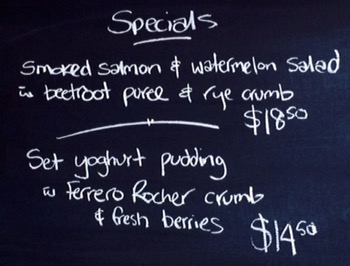 Specials
Smoked Salmon & watermelon Salad
w beetroot puree & rye crumb
$18.50
Set yoghurt pudding
w Ferrero Rocher crumb
& fresh berries
$14.50